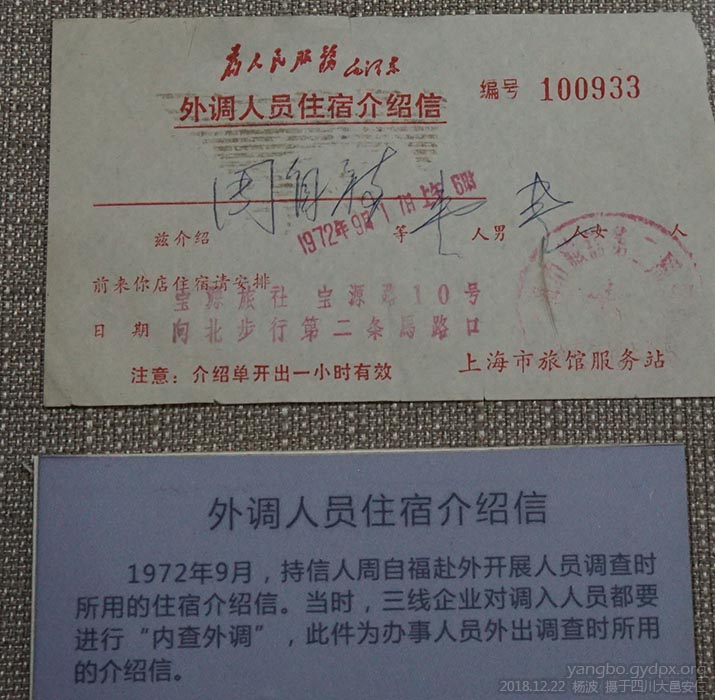 为人民服务 毛泽东
外调人员住宿介绍信
编号 100933
周自福
1972年9月1日上午6时
兹介绍 等 人男 人女 人
前来你店住宿请安排
宝源旅社 宝源路10号
日期 向北步行第二条馬路口
注意：介绍单开出一小时有效
上海市旅馆服务站
外调人员住宿介绍信
1972年9月，持信人周自福赴外开展人员调查时
所用的住宿介绍信。当时，三线企业对调入人员都要
进行“内查外调”，此件为办事人员外出调查时所用
的介绍信。
yangbo.gydpx.org
2018.12.22 杨波 摄于四川大邑安仁